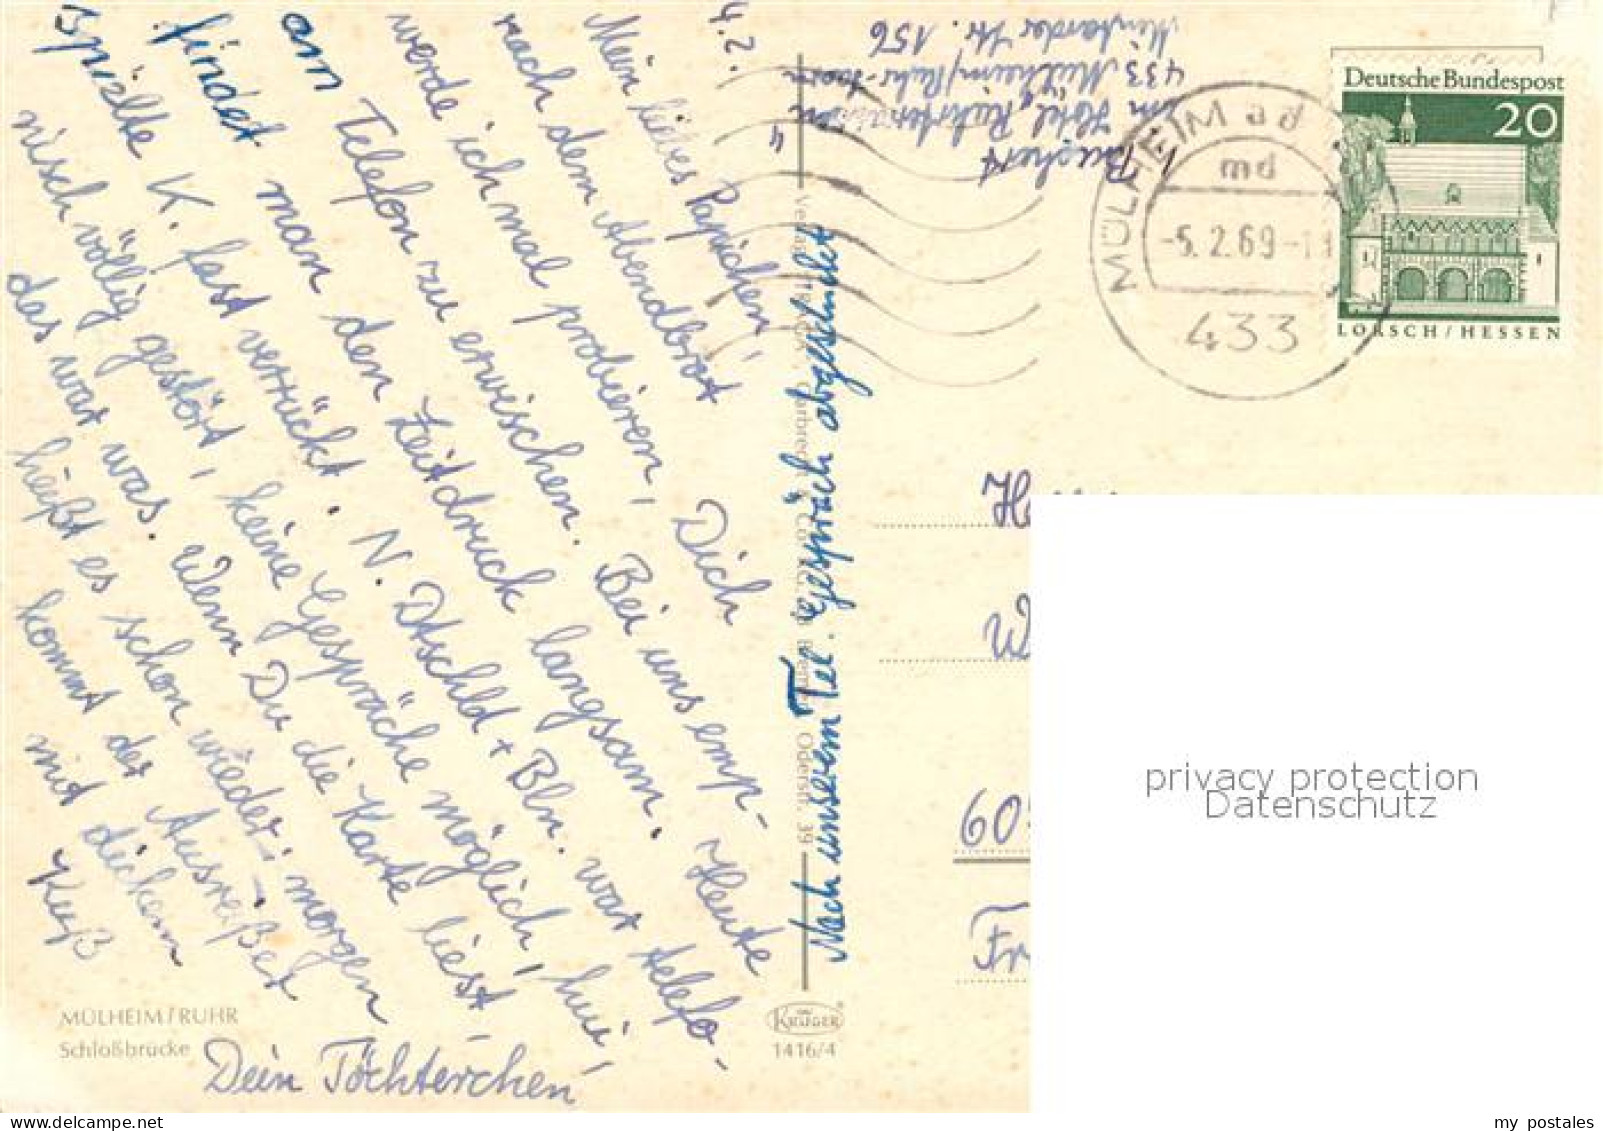 4.2.
Mein liebes Papichen!
nach dem Abendbrot
werde ich mal probieren, Dich
am Telefon zu erwischen. Bei uns emp-
findet man den Zeitdruck langsam. Heute
spielte K. fast verrückt. N. Dtschld + Bln. war telefo-
nisch völlig gestört, keine Gespräche möglich, hui,
das war was. Wenn Du die Karte liest,
heißt es schon wieder: morgen
kommt der Ausreißer
mit dickem
Kuß
Dein Töchterchen
Nach unserem Tel. Gespräch abgeschickt
MÜLHEIM/RUHR
Schloßbrücke
KRÜGER
1416/4
Oderstr. 39
im Hotel
433 Mülheim/Ruhr-
Mintarder Str. 156
MÜLHEIM
md
-5.2.69-
433
Deutsche Bundespost
20
LORSCH/HESSEN
H
W
60
Fr
privacy protection
Datenschutz
my postales